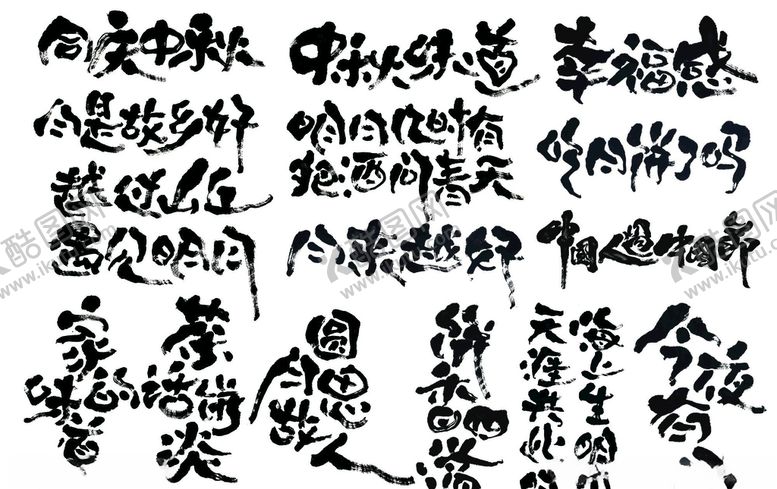 同庆中秋
中秋味道
幸福感
月是故乡好
明月几时有
把酒问青天
吃月饼了吗
越过山丘
遇见明月
月来越好
中國人過中國節
家的味道
茶话饼淡
圆月思故人
饼香四溢
海上生明
天涯共此时
今夜有